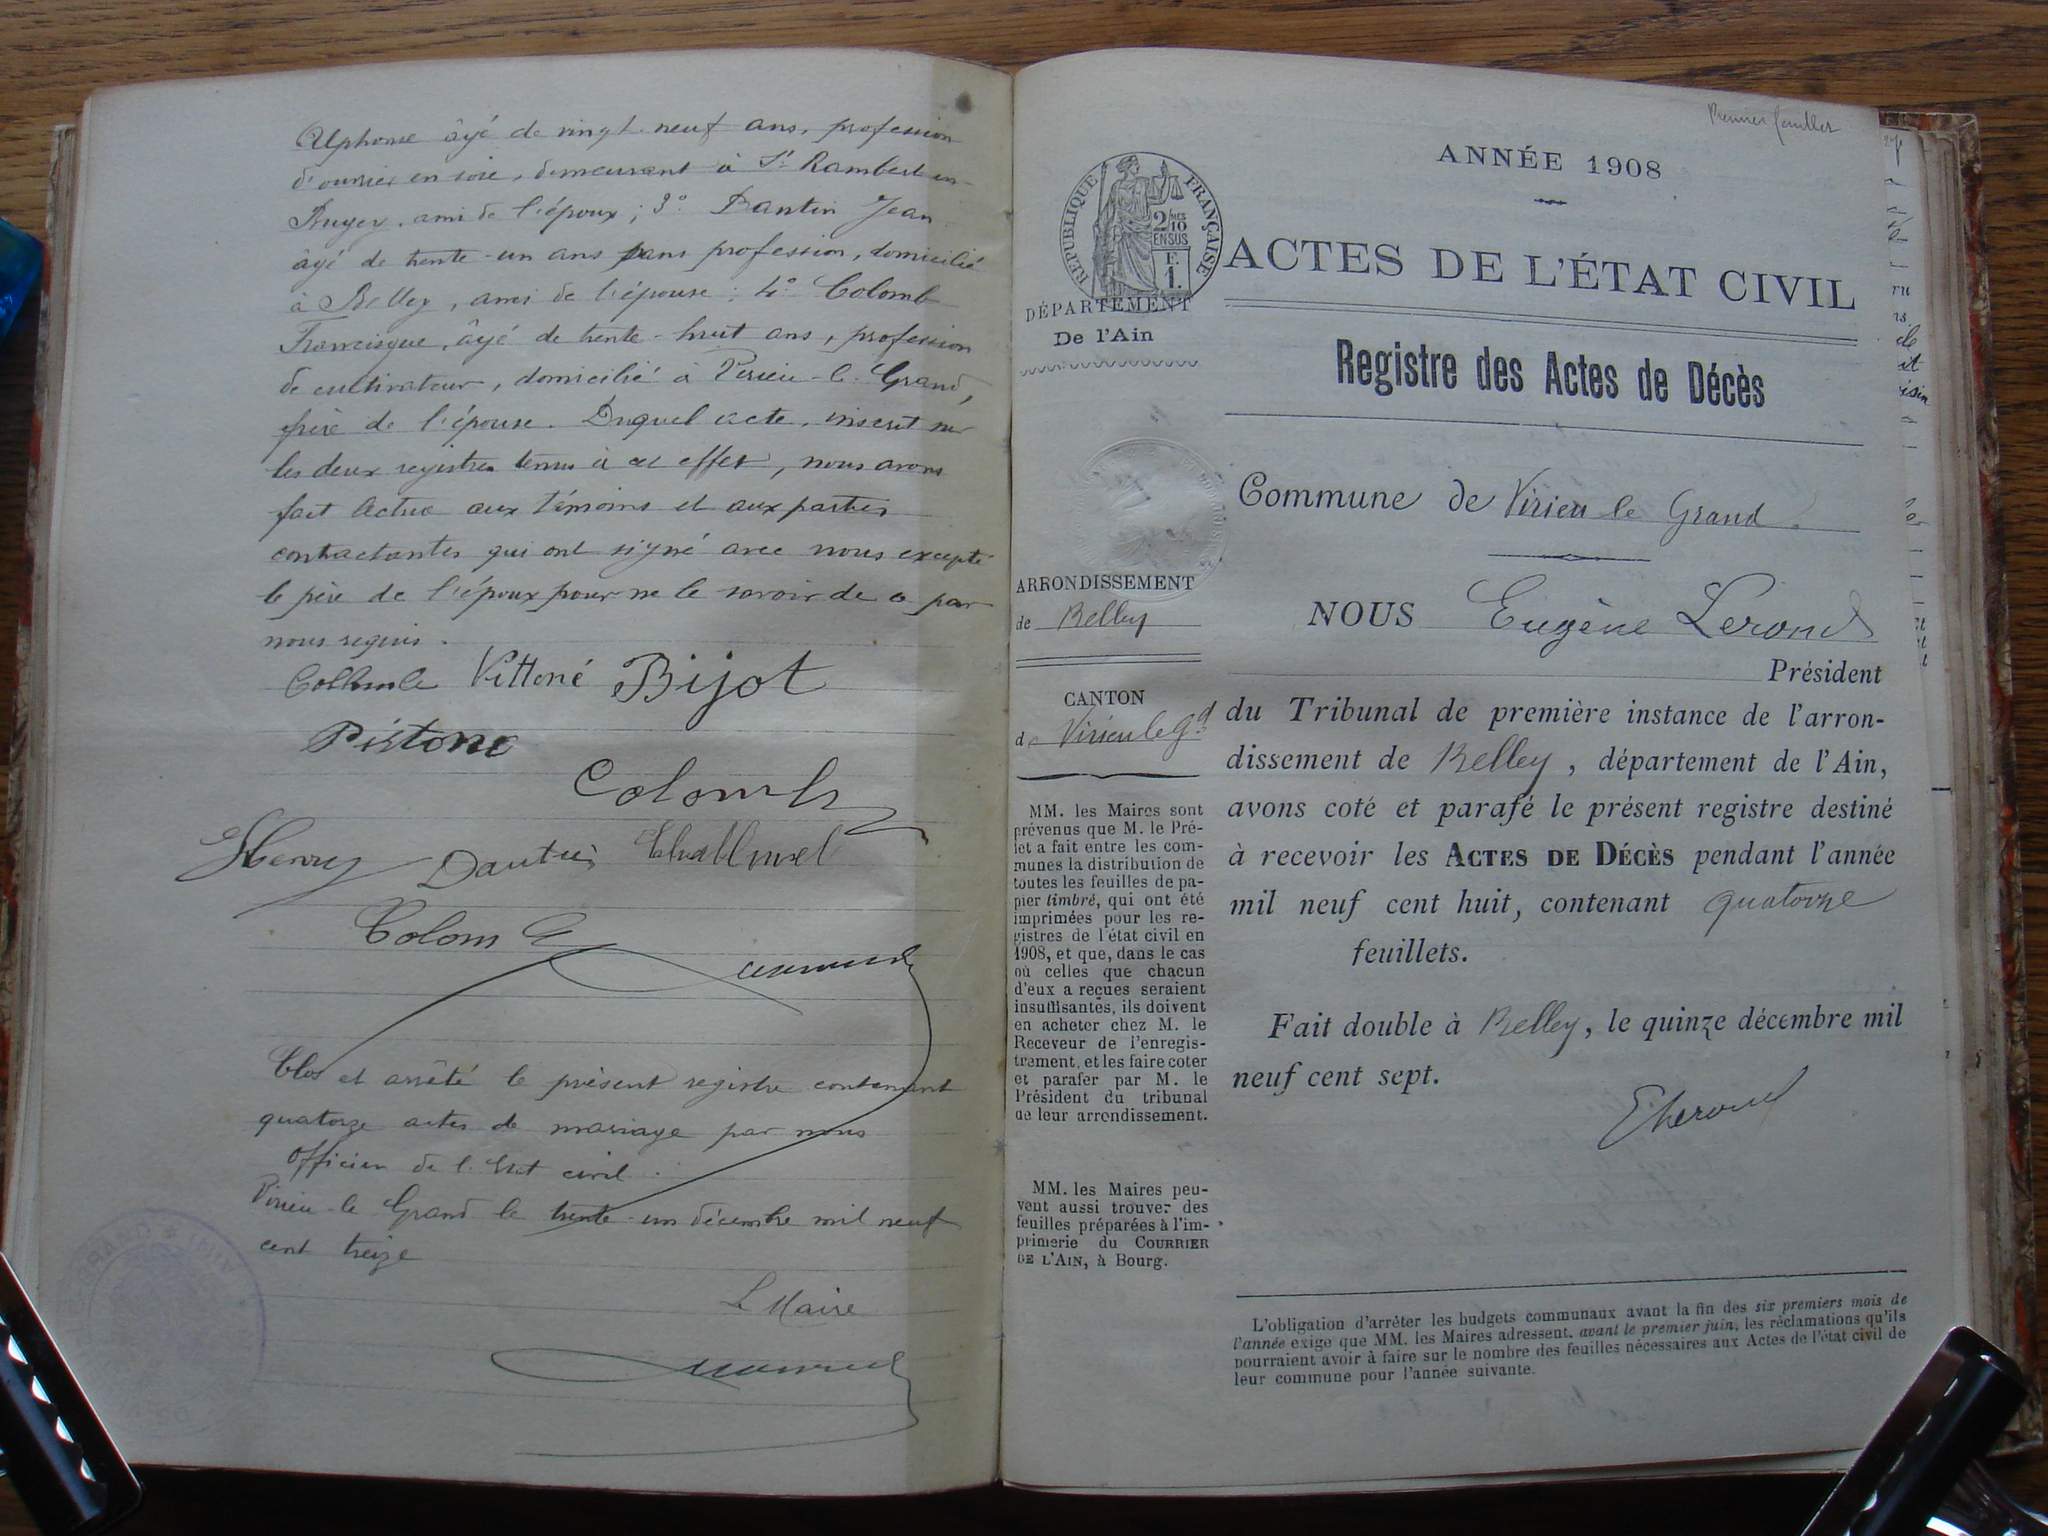 Alphonse âgé de vingt-neuf ans, profession
d'ouvrier en soie, demeurant à St Rambert en
Bugey, ami de l'époux; 3° Dantin Jean
âgé de trente-un ans sans profession, domicilié
à Belley, ami de l'épouse; 4° Colomb
Francisque, âgé de trente-huit ans, profession
de cultivateur, domicilié à Virieu-le-Grand,
frère de l'épouse. Duquel acte, inscrit sur
les deux registres tenus à cet effet, nous avons
fait lecture aux témoins et aux parties
contractantes qui ont signé avec nous excepté
le père de l'époux pour ne le savoir de ce par
nous requis.
Vittoné Bijot
Pistone
Colomb
Henry Dantin
Colomb
Clos et arrêté le présent registre contenant
quatorze actes de mariage par nous
Officier de l'Etat civil.
Virieu-le-Grand le trente-un décembre mil neuf
cent treize
Le Maire
Premier feuillet
ANNÉE 1908
RÉPUBLIQUE FRANÇAISE
2/10
EN SUS
F.
1.
ACTES DE L'ÉTAT CIVIL
DÉPARTEMENT
De l'Ain
Registre des Actes de Décès
Commune de Virieu le Grand.
ARRONDISSEMENT
de Belley
NOUS Eugène Lerond
Président
CANTON
de Virieu le Gd
du Tribunal de première instance de l'arron-
dissement de Belley, département de l'Ain,
avons coté et parafé le présent registre destiné
à recevoir les ACTES DE DÉCÈS pendant l'année
mil neuf cent huit, contenant quatorze
feuillets.
Fait double à Belley, le quinze décembre mil
neuf cent sept.
MM. les Maires sont
prévenus que M. le Pré-
fet a fait entre les com-
munes la distribution de
toutes les feuilles de pa-
pier timbré, qui ont été
imprimées pour les re-
gistres de l'état civil en
1908, et que, dans le cas
où celles que chacun
d'eux a reçues seraient
insuffisantes, ils doivent
en acheter chez M. le
Receveur de l'enregis-
trement, et les faire coter
et parafer par M. le
Président du tribunal
de leur arrondissement.
MM. les Maires peu-
vent aussi trouver des
feuilles préparées à l'im-
primerie du COURRIER
DE L'AIN, à Bourg.
L'obligation d'arrêter les budgets communaux avant la fin des six premiers mois de
l'année exige que MM. les Maires adressent, avant le premier juin, les réclamations qu'ils
pourraient avoir à faire sur le nombre des feuilles nécessaires aux Actes de l'état civil de
leur commune pour l'année suivante.